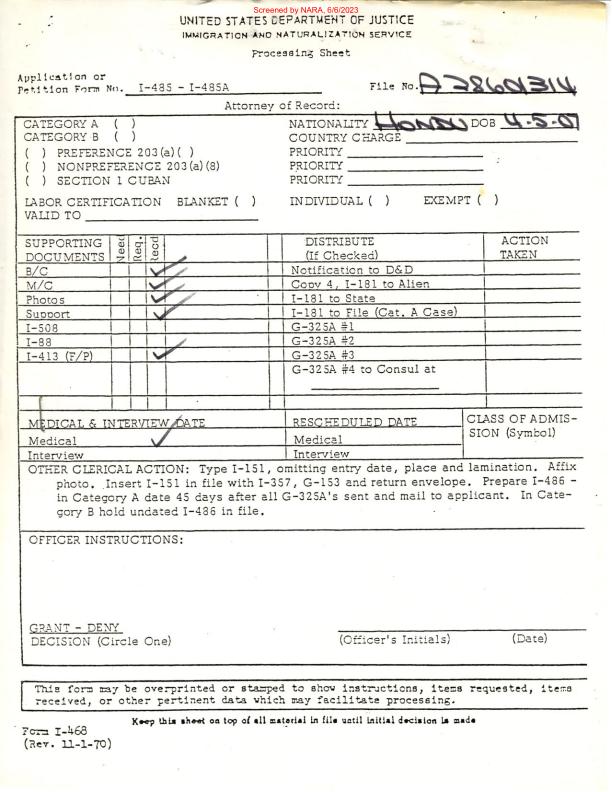 Screened by NARA, 6/6/2023
UNITED STATES DEPARTMENT OF JUSTICE
IMMIGRATION AND NATURALIZATION SERVICE
Processing Sheet
Application or
Petition Form No. I-485 - I-485A File No. A 28601314
Attorney of Record:
CATEGORY A ( ) NATIONALITY HONDU DOB 4-5-07
CATEGORY B ( ) COUNTRY CHARGE
( ) PREFERENCE 203(a)( ) PRIORITY
( ) NONPREFERENCE 203(a)(8) PRIORITY
( ) SECTION 1 CUBAN PRIORITY
LABOR CERTIFICATION BLANKET ( ) INDIVIDUAL ( ) EXEMPT ( )
VALID TO
SUPPORTING DOCUMENTS Need Req. Recd DISTRIBUTE (If Checked) ACTION TAKEN
B/C ✓ Notification to D&D
M/C ✓ Copy 4, I-181 to Alien
Photos ✓ I-181 to State
Support ✓ I-181 to File (Cat. A Case)
I-508 G-325A #1
I-88 G-325A #2
I-413 (F/P) ✓ G-325A #3
G-325A #4 to Consul at
MEDICAL & INTERVIEW DATE RESCHEDULED DATE CLASS OF ADMIS-
SION (Symbol)
Medical ✓ Medical
Interview Interview
OTHER CLERICAL ACTION: Type I-151, omitting entry date, place and lamination. Affix
photo. Insert I-151 in file with I-357, G-153 and return envelope. Prepare I-486 -
in Category A date 45 days after all G-325A's sent and mail to applicant. In Cate-
gory B hold undated I-486 in file.
OFFICER INSTRUCTIONS:
GRANT - DENY
DECISION (Circle One) (Officer's Initials) (Date)
This form may be overprinted or stamped to show instructions, items requested, items
received, or other pertinent data which may facilitate processing.
Keep this sheet on top of all material in file until initial decision is made
Form I-468
(Rev. 11-1-70)